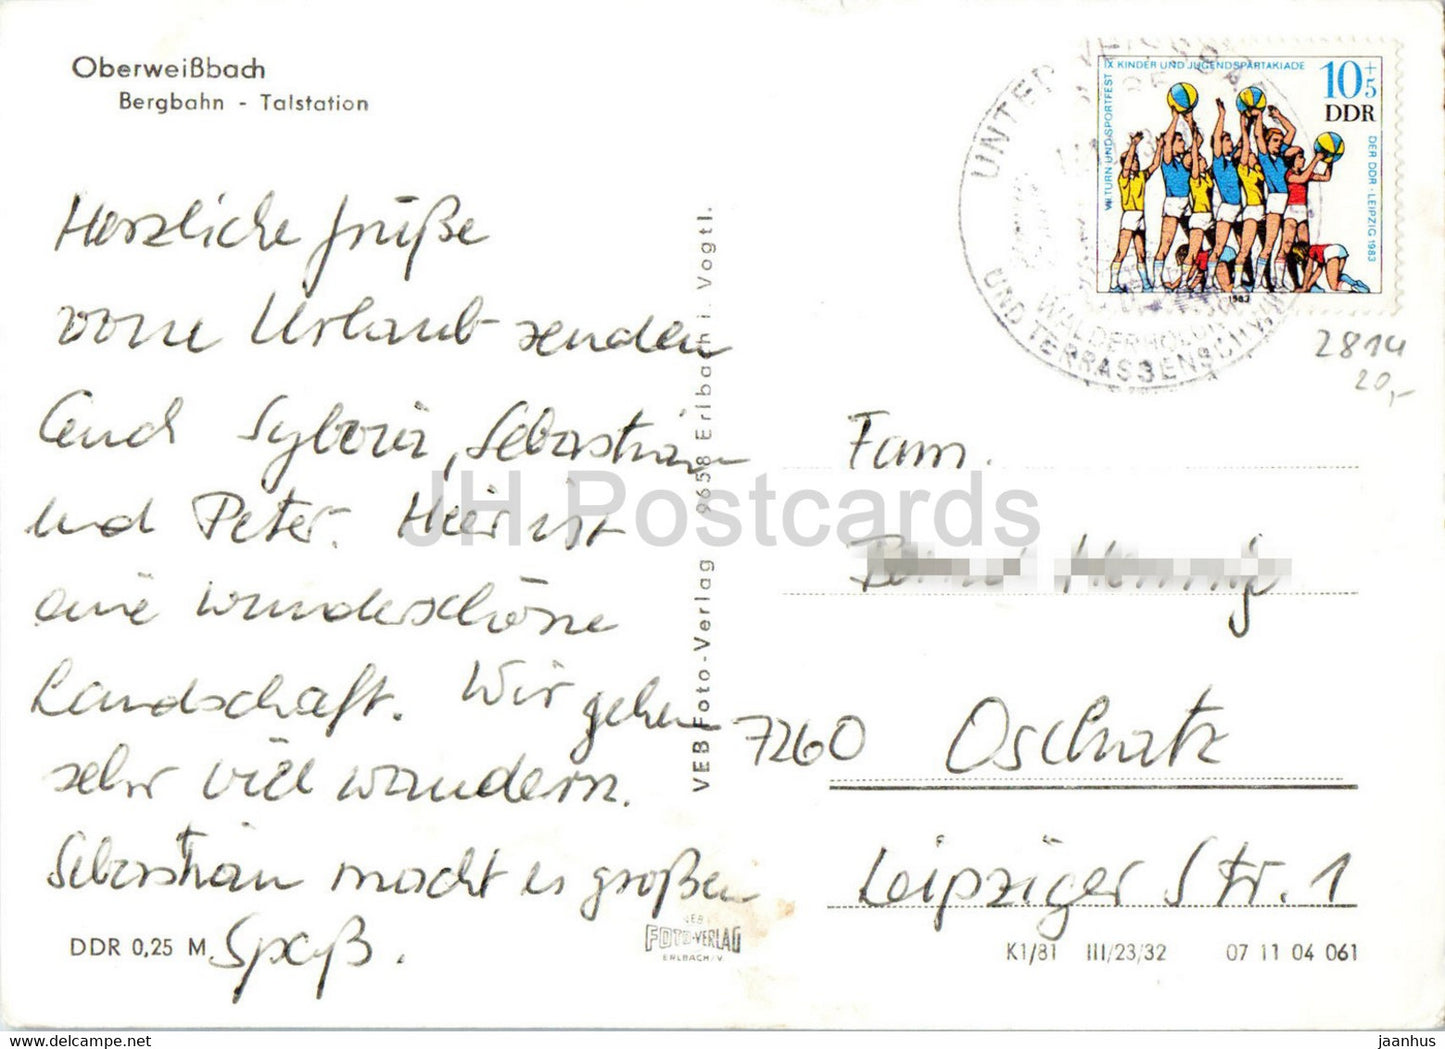 Oberweißbach
Bergbahn - Talstation
Herzliche Grüße
vom Urlaub senden
Euch Sylvia, Sebastian
und Peter. Hier ist
eine wunderschöne
Landschaft. Wir gehen
sehr viel wandern.
Sebastian macht es großen
Spaß.
DDR 0,25 M
VEB Foto-Verlag 9658 Erlbach i. Vogtl.
FOTO-VERLAG
ERLBACH/V.
IX KINDER UND JUGENDSPARTAKIADE
VII TURN UND SPORTFEST
DER DDR · LEIPZIG 1983
10+5
DDR
1983
UNTER
UND TERRASSENSCHW
2814
20,-
Fam.
7260 Oschatz
Leipziger Str. 1
K1/81 III/23/32 07 11 04 061
JH Postcards
oldthing.de
jaanhus